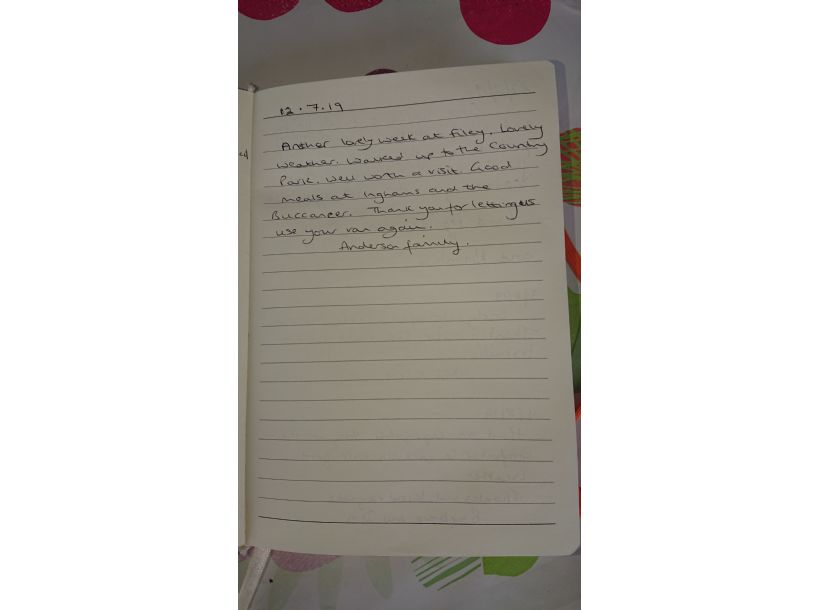 12.7.19
Another lovely week at Filey. Lovely
weather. Walked up to the Country
Park. Well worth a visit. Good
meals at Inghams and the
Buccaneer. Thank you for letting us
use your van again.
Anderson family.